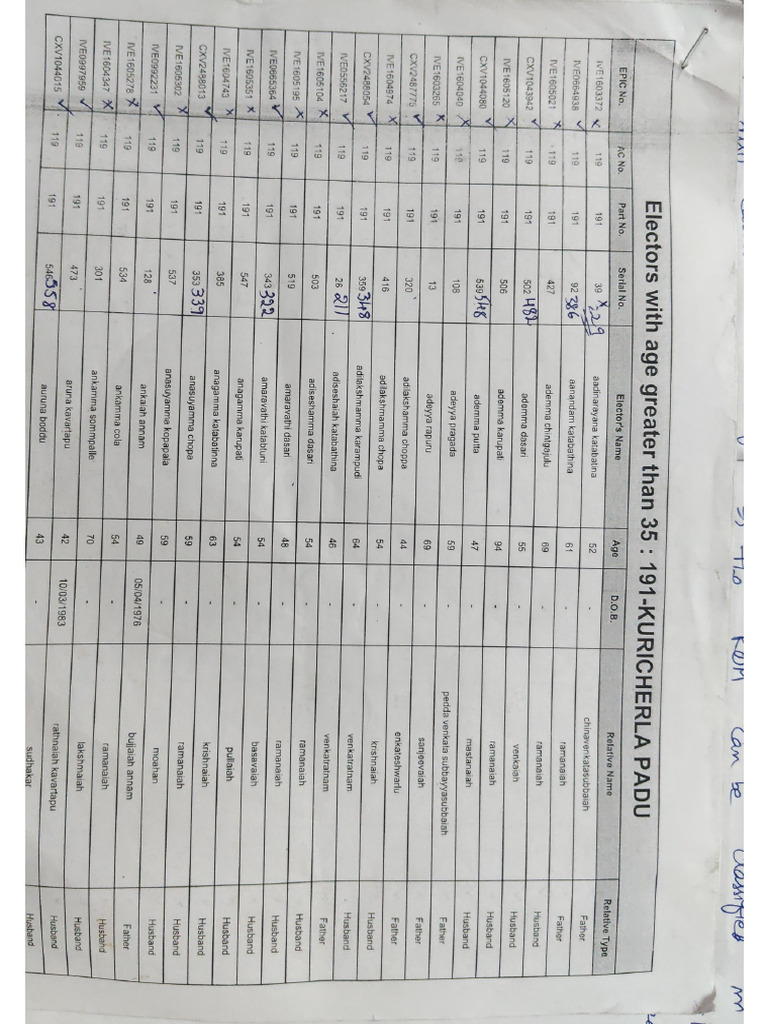 3) The can be classified in
Electors with age greater than 35 : 191-KURICHERLA PADU
EPIC No. AC No. Part No. Serial No. Elector's Name Age D.O.B. Relative Name Relative Type
IVE1603372 × 119 191 39 × 229 aadinarayana katabatina 52 - chinavenkatasubbaiah Father
IVE0664938 ✓ 119 191 92 386 aanandam katabathina 61 - ramanaiah Father
IVE1605021 × 119 191 427 ademma chintgajulu 69 - ramanaiah Husband
CXV1043942 ✓ 119 191 502 482 ademma dasari 55 - venkaiah Husband
IVE1605120 × 119 191 506 ademma karupati 94 - ramanaiah Husband
CXV1044080 ✓ 119 191 539 548 ademma putta 47 - mastanaiah Husband
IVE1604040 × 119 191 108 adeyya pragada 59 - pedda venkata subbayyasubbaiah Father
IVE1603265 × 119 191 13 adeyya rapuru 69 - sanjeevaiah Father
CXV2487775 ✓ 119 191 320 adilakshamma choppa 44 - enkateshwarlu Father
IVE1604974 × 119 191 416 adilakshmamma chopa 54 - krishnaiah Husband
CXV2488054 ✓ 119 191 359 348 adilakshmamma karampudi 64 - venkatratnam Husband
IVE0556217 ✓ 119 191 26 211 adiseshaiah katabathina 46 - venkatratnam Father
IVE1605104 × 119 191 503 adiseshamma dasari 54 - ramanaiah Husband
IVE1605195 × 119 191 519 amaravathi dasari 48 - ramanaiah Husband
IVE0665364 ✓ 119 191 343 322 amaravathi katabturi 54 - basavaiah Husband
IVE1605351 × 119 191 547 anagamma karupati 54 - pullaiah Husband
IVE1604743 × 119 191 385 anagamma katabatinna 63 - krishnaiah Husband
CXV2488013 ✓ 119 191 353 339 anasuyamma chopa 59 - ramanaiah Husband
IVE1605302 × 119 191 537 anasuyamma kopapala 59 - moahan Husband
IVE0992231 ✓ 119 191 128 ankaiah annam 49 05/04/1976 bujjaiah annam Father
IVE1605278 × 119 191 534 ankamma cola 54 - ramanaiah Husband
IVE1604347 × 119 191 301 ankamma somimpalle 70 - lakshmaiah Husband
IVE0997959 ✓ 119 191 473 aruna kavartapu 42 10/03/1983 rathnaiah kavartapu Husband
CXV1044015 ✓ 119 191 546 558 auruna boddu 43 - sudhakar Husband